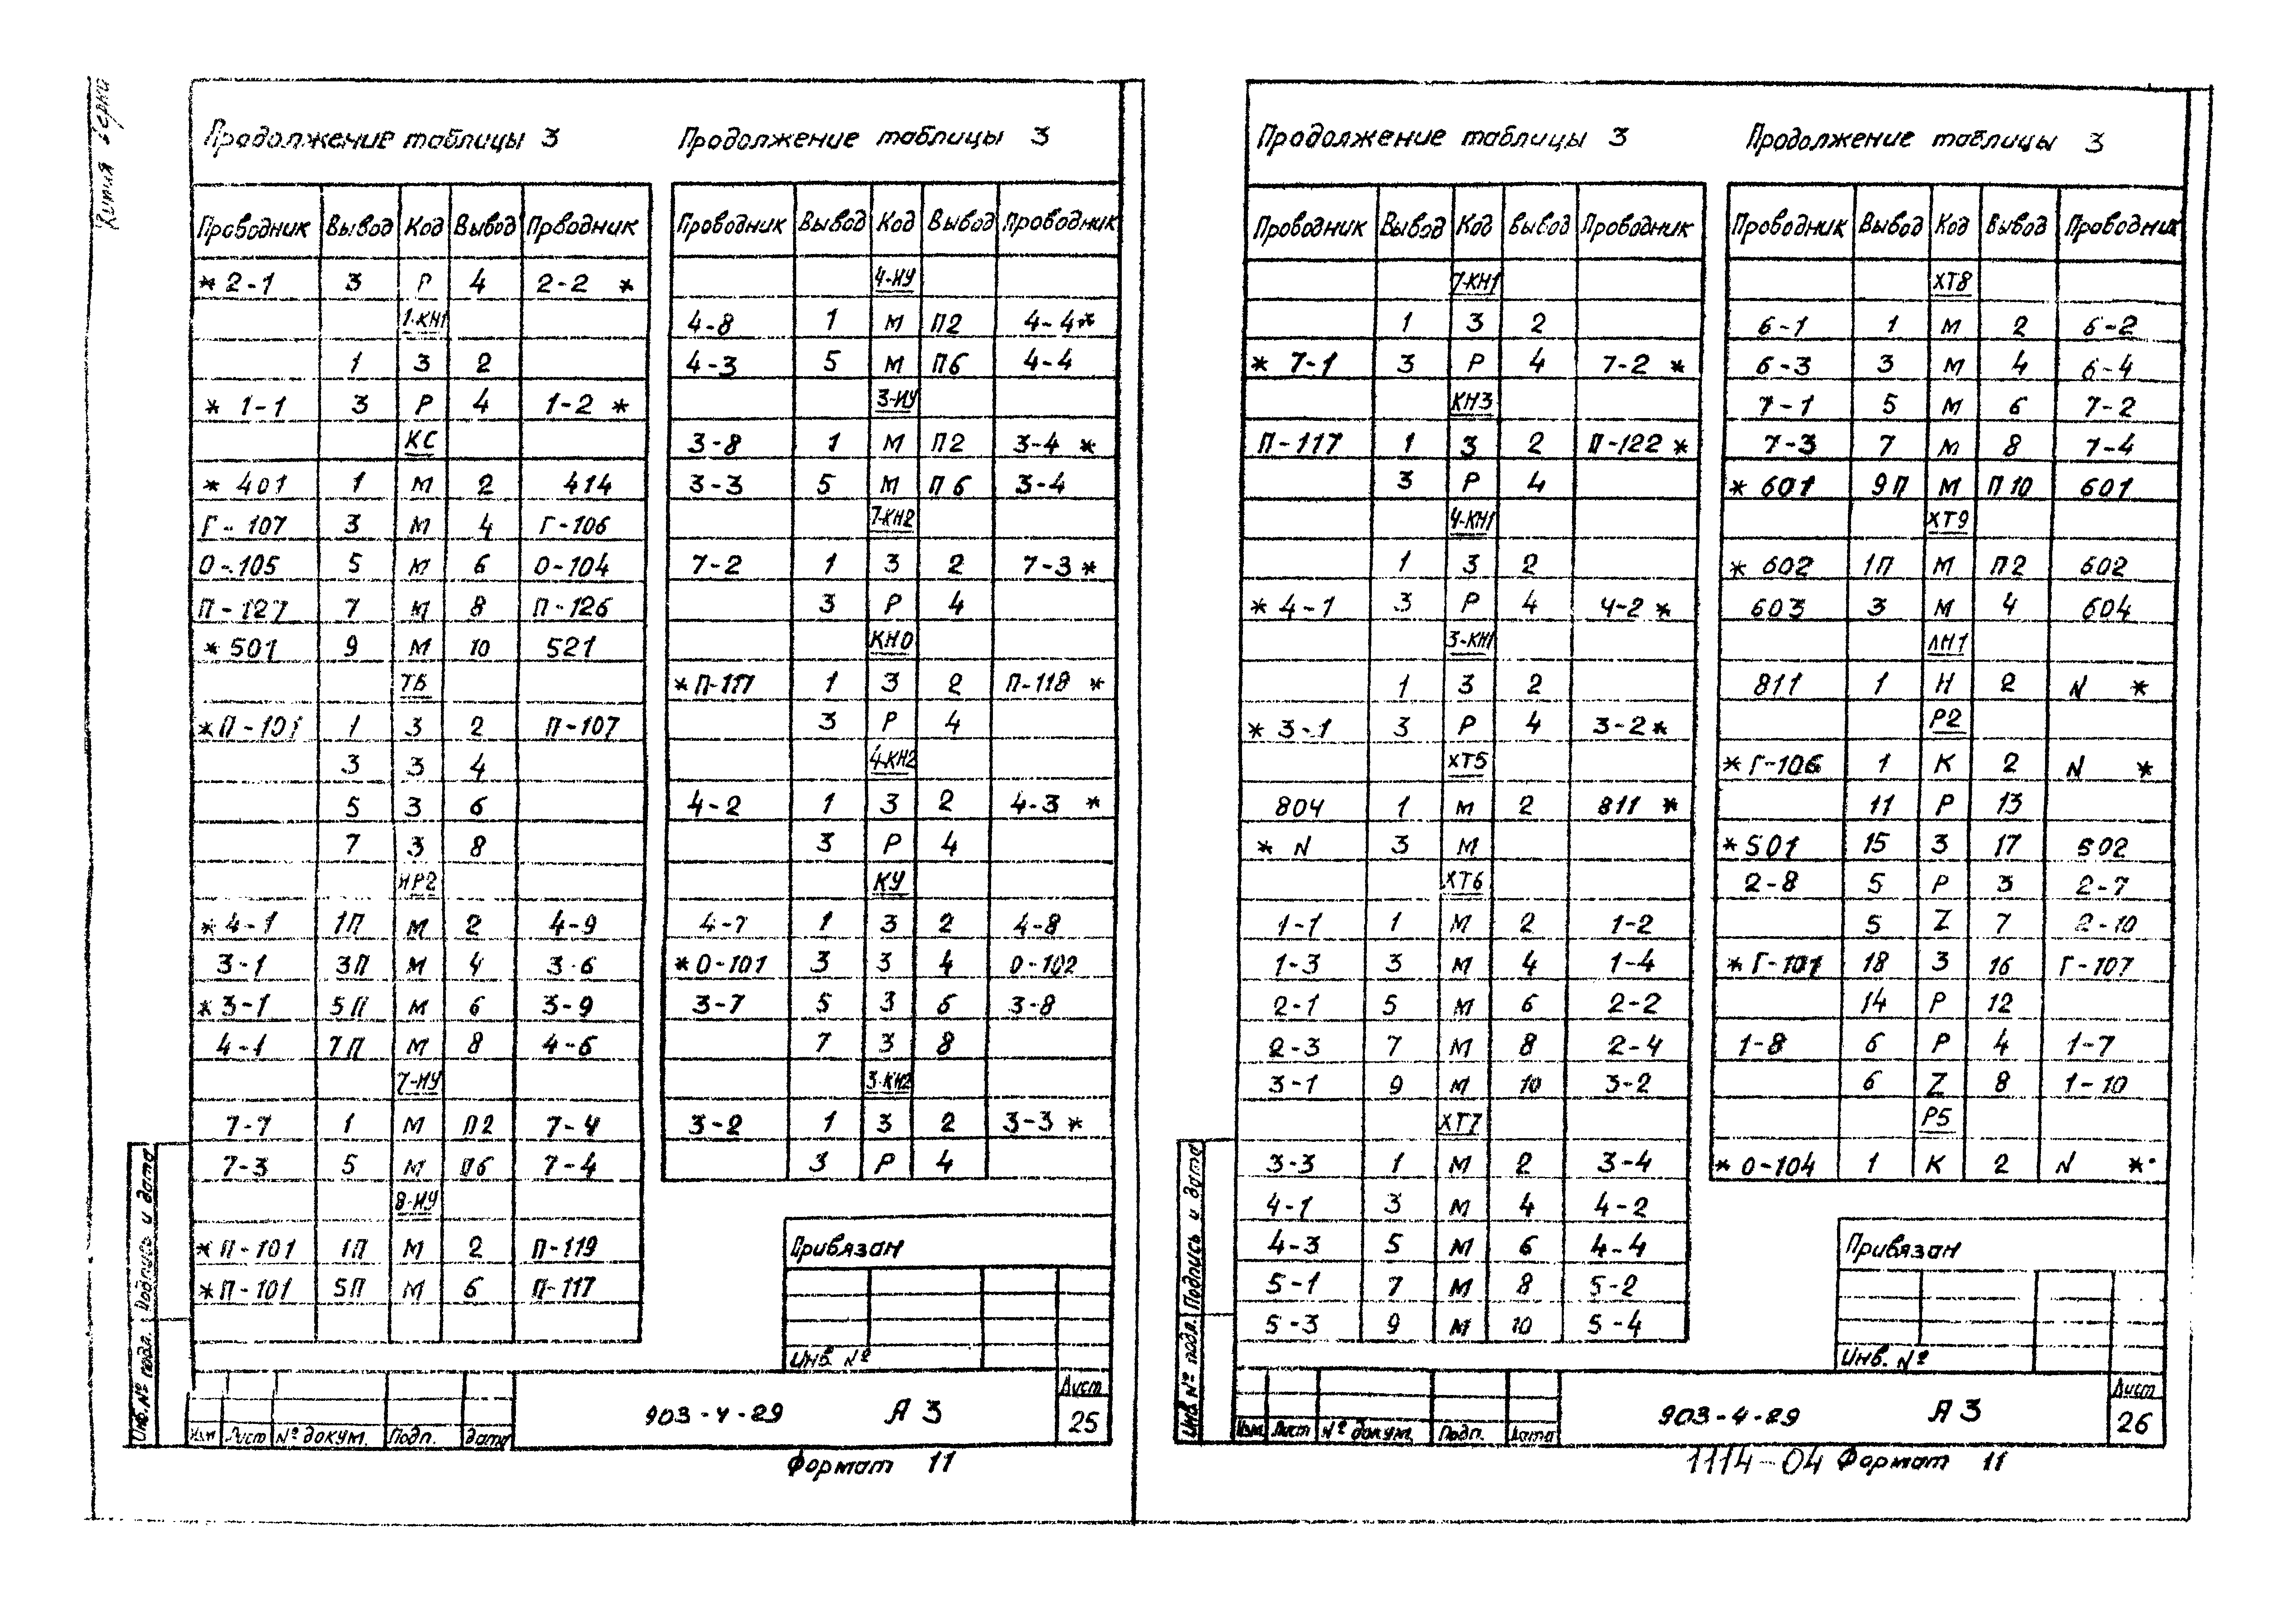 Продолжение таблицы 3
Проводник Вывод Код Вывод Прводник
* 2-1 3 Р 4 2-2 *
1-КН1
1 З 2
* 1-1 3 Р 4 1-2 *
КС
* 401 1 М 2 414
Г-107 3 М 4 Г-106
О-105 5 М 6 О-104
П-127 7 М 8 П-126
* 501 9 М 10 521
Т6
* П-101 1 З 2 П-107
3 З 4
5 З 6
7 З 8
ИР2
* 4-1 1П М 2 4-9
3-1 3П М 4 3-6
* 3-1 5П М 6 3-9
4-1 7П М 8 4-6
7-ИУ
7-7 1 М П2 7-4
7-3 5 М П6 7-4
8-ИУ
* П-101 1П М 2 П-119
* П-101 5П М 6 П-117
Продолжение таблицы 3
Проводник Вывод Код Вывод Проводник
4-ИУ
4-8 1 М П2 4-4 *
4-3 5 М П6 4-4
3-ИУ
3-8 1 М П2 3-4 *
3-3 5 М П6 3-4
7-КН2
7-2 1 З 2 7-3 *
3 Р 4
КН0
* П-117 1 З 2 П-118 *
3 Р 4
4-КН2
4-2 1 З 2 4-3 *
3 Р 4
КУ
4-7 1 З 2 4-8
* О-101 3 З 4 О-102
3-7 5 З 6 3-8
7 З 8
3-КН2
3-2 1 З 2 3-3 *
3 Р 4
Привязан
Инв. №
Инв. № подл. Подпись и дата
Изм Лист № докум. Подп. Дата
903-4-29 А 3
Лист
25
Формат 11
Продолжение таблицы 3
Проводник Вывод Код Вывод Проводник
7-КН1
1 З 2
* 7-1 3 Р 4 7-2 *
КН3
П-117 1 З 2 П-122 *
3 Р 4
4-КН1
1 З 2
* 4-1 3 Р 4 4-2 *
3-КН1
1 З 2
* 3-1 3 Р 4 3-2 *
ХТ5
804 1 М 2 811 *
* N 3 М
ХТ6
1-1 1 М 2 1-2
1-3 3 М 4 1-4
2-1 5 М 6 2-2
2-3 7 М 8 2-4
3-1 9 М 10 3-2
ХТ7
3-3 1 М 2 3-4
4-1 3 М 4 4-2
4-3 5 М 6 4-4
5-1 7 М 8 5-2
5-3 9 М 10 5-4
Продолжение таблицы 3
Проводник Вывод Код Вывод Проводник
ХТ8
6-1 1 М 2 6-2
6-3 3 М 4 6-4
7-1 5 М 6 7-2
7-3 7 М 8 7-4
* 601 9П М П10 601
ХТ9
* 602 1П М П2 602
603 3 М 4 604
ЛН1
811 1 Н 2 N *
Р2
* Г-106 1 К 2 N *
11 Р 13
* 501 15 З 17 502
2-8 5 Р 3 2-7
5 Z 7 2-10
* Г-101 18 З 16 Г-107
14 Р 12
1-8 6 Р 4 1-7
6 Z 8 1-10
Р5
* О-104 1 К 2 N *
Привязан
Инв. №
Инв № подл. Подпись и дата
Изм Лист № докум. Подп. Дата
903-4-29 А 3
Лист
26
1114-04 Формат 11